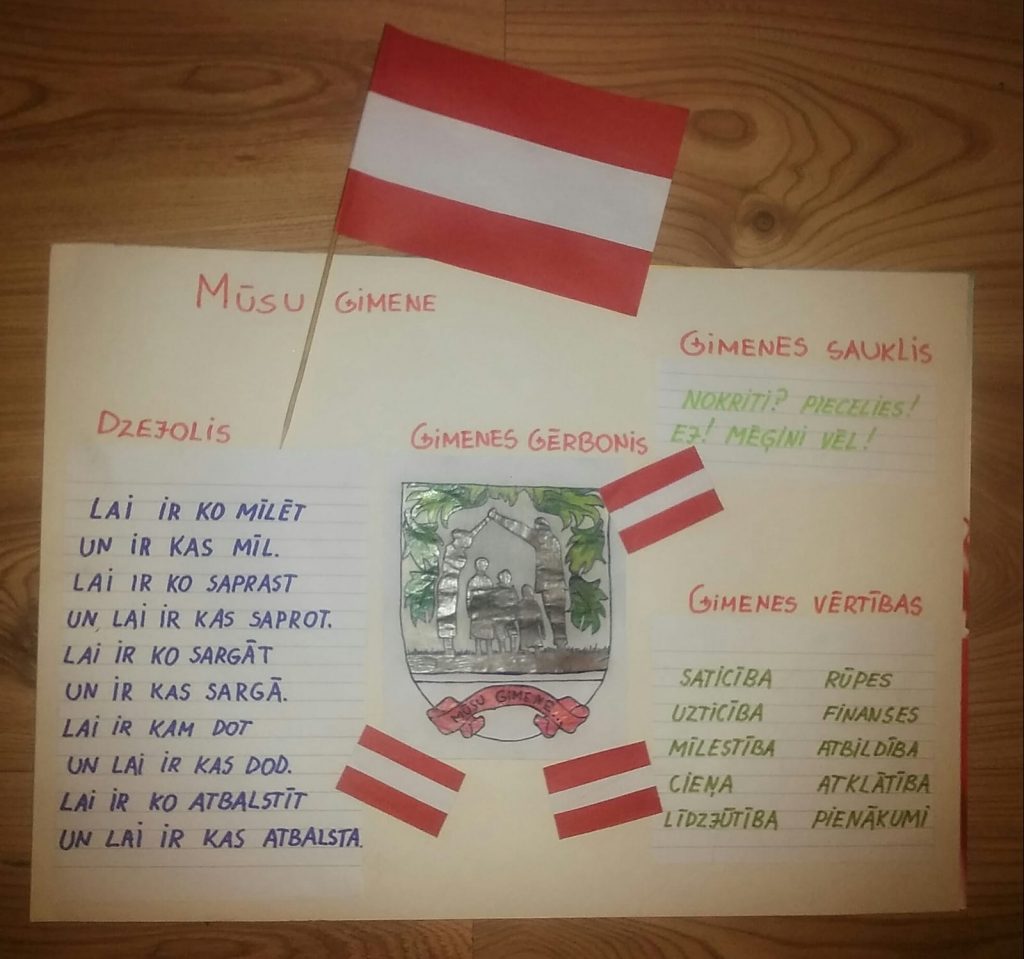 MŪSU ĢIMENE
DZEJOLIS
LAI IR KO MĪLĒT
UN IR KAS MĪL.
LAI IR KO SAPRAST
UN, LAI IR KAS SAPROT.
LAI IR KO SARGĀT
UN IR KAS SARGĀ.
LAI IR KAM DOT
UN LAI IR KAS DOD.
LAI IR KO ATBALSTĪT
UN LAI IR KAS ATBALSTA.
ĢIMENES ĢĒRBONIS
MŪSU ĢIMENE...
ĢIMENES SAUKLIS
NOKRITI? PIECELIES!
EJ! MĒĢINI VĒL!
ĢIMENES VĒRTĪBAS
SATICĪBA RŪPES
UZTICĪBA FINANSES
MĪLESTĪBA ATBILDĪBA
CIEŅA ATKLĀTĪBA
LĪDZJŪTĪBA PIENĀKUMI